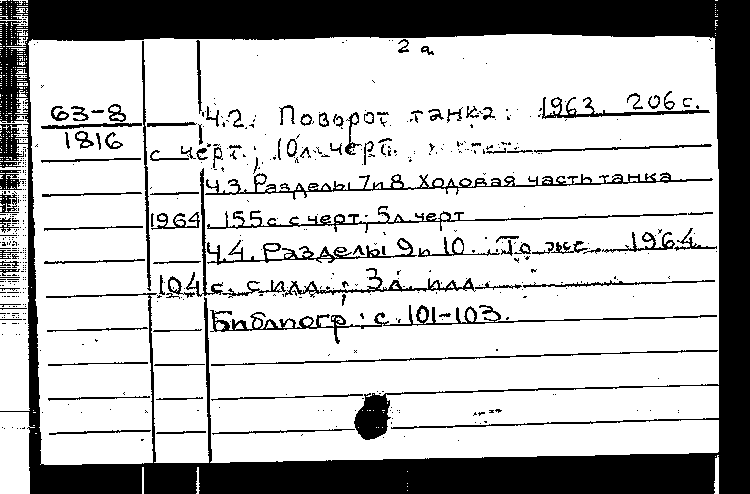 2 а
63-8
1816
Ч.2. Поворот танка. 1963. 206 с.
с черт.; 10 л. черт.
Ч.3. Разделы 7 и 8. Ходовая часть танка
1964. 155 с с черт; 5 л черт
Ч.4. Разделы 9 и 10. То же. 1964
104 с. с илл.; 3 л. илл.
Библиогр: с. 101-103.